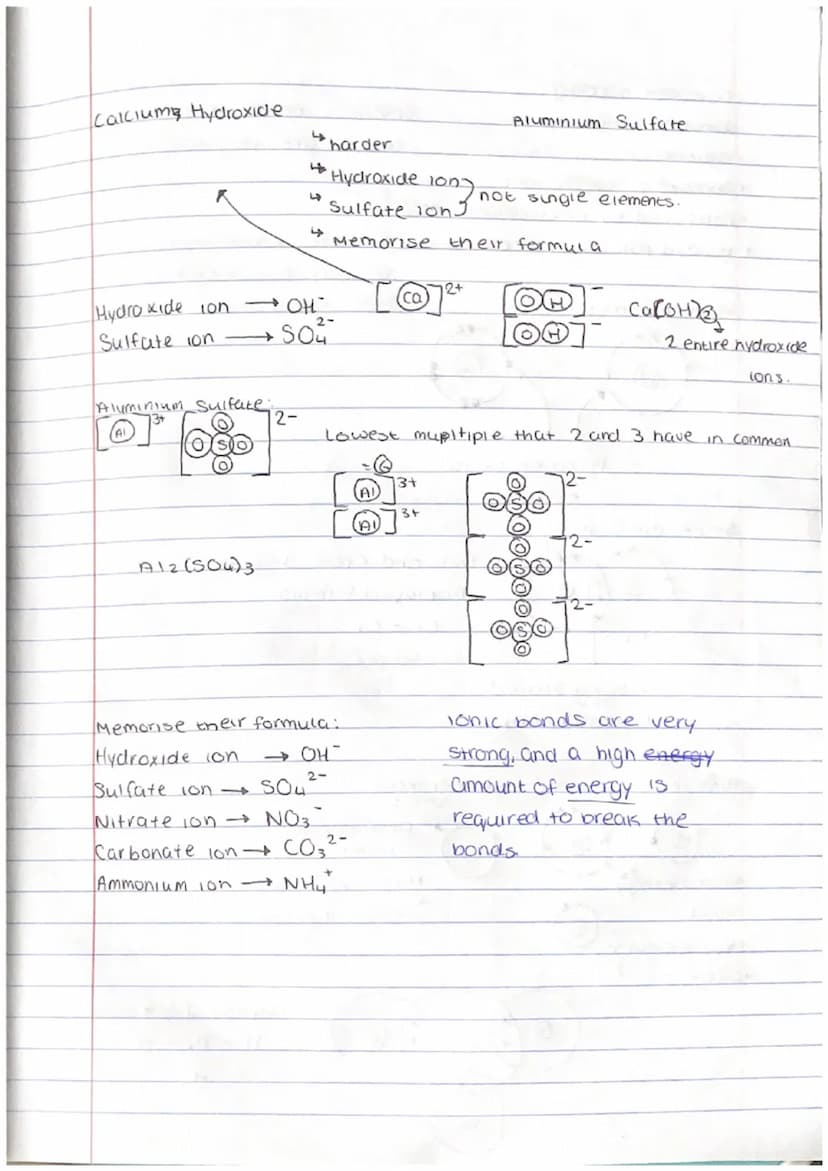 Calcium Hydroxide
Aluminium Sulfate
↳ harder
↳ Hydroxide ion
↳ Sulfate ion } not single elements.
↳ Memorise their formula
Hydroxide ion → OH⁻
Sulfate ion → SO₄²⁻
[Ca]²⁺
[OH]⁻
[OH]⁻
Ca(OH)₂
2 entire hydroxide
ions.
Aluminium Sulfate:
[Al]³⁺
O
O S O
O
2-
Lowest mupltiple that 2 and 3 have in common
= 6
[Al]³⁺
[Al]³⁺
O
O S O
O
2-
O
O S O
O
2-
O
O S O
O
2-
Al₂(SO₄)₃
Memorise their formula:
Hydroxide ion → OH⁻
Sulfate ion → SO₄²⁻
Nitrate ion → NO₃⁻
Carbonate ion → CO₃²⁻
Ammonium ion → NH₄⁺
ionic bonds are very
strong, and a high energy
amount of energy is
required to break the
bonds